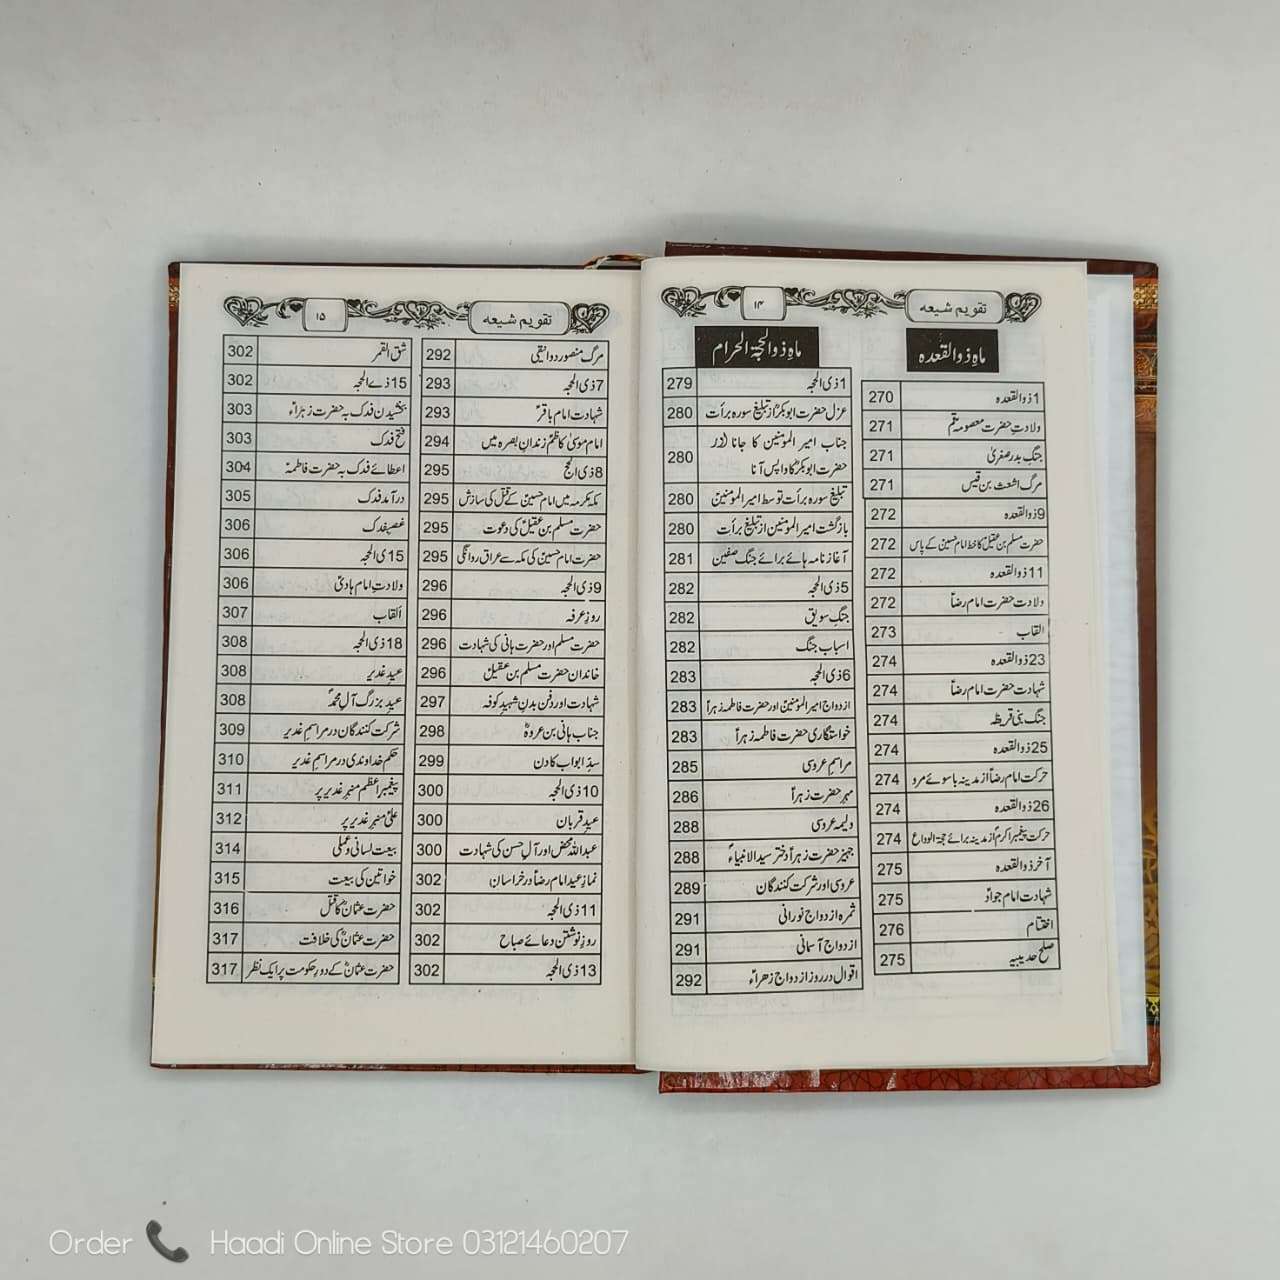 تقویم شیعہ ۱۴
ماہِ ذوالقعدہ
1 ذوالقعدہ 270
ولادتِ حضرت معصومہ قم 271
جنگِ بدر صغریٰ 271
مرگ اشعث بن قیس 271
9 ذوالقعدہ 272
حضرت مسلم بن عقیل کا خط امام حسینؑ کے پاس 272
11 ذوالقعدہ 272
ولادت حضرت امام رضاؑ 272
القاب 273
23 ذوالقعدہ 274
شہادت حضرت امام رضاؑ 274
جنگ بنی قریظہ 274
25 ذوالقعدہ 274
حرکت امام رضاؑ از مدینہ با سوئے مرو 274
26 ذوالقعدہ 274
حرکت پیغمبر اکرمؐ از مدینہ برائے حجۃ الوداع 274
آخر ذوالقعدہ 275
شہادت امام جوادؑ 275
اختتام 276
صلح حدیبیہ 275
ماہِ ذوالحجۃ الحرام
1 ذی الحجہ 279
عزل حضرت ابوبکرؓ از تبلیغ سورہ برأت 280
جناب امیر المومنین کا جانا اور
حضرت ابوبکرؓ کا واپس آنا 280
تبلیغ سورہ برأت توسط امیر المومنینؑ 280
بازگشت امیر المومنین از تبلیغ برأت 280
آغاز نامہ ہائے برائے جنگ صفین 281
5 ذی الحجہ 282
جنگِ سویق 282
اسباب جنگ 282
6 ذی الحجہ 283
ازدواج امیر المومنینؑ اور حضرت فاطمہ زہراؑ 283
خواستگاری حضرت فاطمہ زہراؑ 283
مراسمِ عروسی 285
مہرِ حضرت زہراؑ 286
ولیمہ عروسی 288
جہیز حضرت زہراؑ دختر سید الانبیاءؐ 288
عروسی اور شرکت کنندگان 289
ثمرہ ازدواج نورانی 291
ازدواج آسمانی 291
اقوال در روز ازدواج زھراءؑ 292
تقویم شیعہ ۱۵
مرگ منصور دوانیقی 292
7 ذی الحجہ 293
شہادت امام باقرؑ 293
امام موسیٰ کاظمؑ زندانِ بصرہ میں 294
8 ذی الحج 295
مکہ مکرمہ میں امام حسینؑ کے قتل کی سازش 295
حضرت مسلم بن عقیلؑ کی دعوت 295
حضرت امام حسینؑ کی مکہ سے عراق روانگی 295
9 ذی الحجہ 296
روزِ عرفہ 296
حضرت مسلم اور حضرت ہانی کی شہادت 296
خاندان حضرت مسلم بن عقیلؑ 296
شہادت اور دفن بدنِ شہیدِ کوفہ 297
جناب ہانی بن عروہؓ 298
سدِ ابواب کا دن 299
10 ذی الحجہ 300
عیدِ قربان 300
عبداللہ محض اور آلِ حسن کی شہادت 300
نمازِ عید امام رضاؑ در خراسان 302
11 ذی الحجہ 302
روزِ نوشتن دعائے صباح 302
13 ذی الحجہ 302
شق القمر 302
15 ذے الحجہ 302
بخشیدن فدک بہ حضرت زہراءؑ 303
فتح فدک 303
اعطائے فدک بہ حضرت فاطمہؑ 304
درآمد فدک 305
غصبِ فدک 306
15 ی الحجہ 306
ولادتِ امام ہادیؑ 306
القاب 307
18 ذی الحجہ 308
عیدِ غدیر 308
عیدِ بزرگ آلِ محمدؐ 308
شرکت کنندگان در مراسمِ غدیر 309
حکم خداوندی در مراسمِ غدیر 310
پیغمبر اعظم منبرِ غدیر پر 311
علیؑ منبرِ غدیر پر 312
بیعت لسانی و عملی 314
خواتین کی بیعت 315
حضرت عثمانؓ کا قتل 316
حضرت عثمانؓ کی خلافت 317
حضرت عثمانؓ کے دورِ حکومت پر ایک نظر 317
Order Haadi Online Store 03121460207